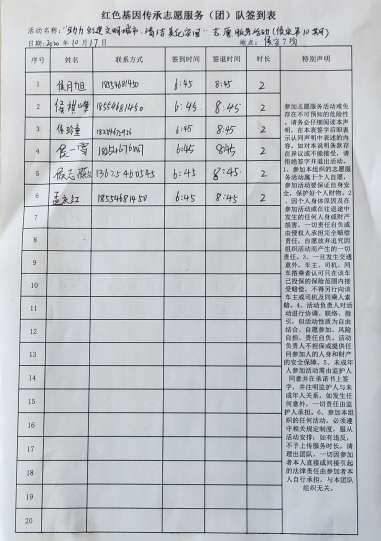 红色基因传承志愿服务（团）队签到表
活动名称:"助力创建文明城市、清洁美化家园"志愿服务活动
日期:2020年10月17日 地点:
序号 姓名 联系方式 签到时间 签退时间 时长 特别声明
1 侯月旭 6:45 8:45 2
2 侯祺峰 18554681450 6:45 8:45 2
3 6:45 8:45 2
4 6:45 8:45 2
5 侯志燕 13675460545 6:45 8:45 2
6 孟庆江 18554681450 6:45 8:45 2
7
8
9
10
11
12
13
14
15
16
17
18
19
20
参加志愿服务活动难免
存在不可预知的危险
性，请务必仔细阅读本声
明，在本表签字后即表
示认同声明中表述的内
容。如对本说明条款存
在异议或不能接受，请
拒绝签字并退出活动。
1、参加本组织的志愿服
务活动属于个人自愿，
参加活动要保证自身安
全，保护好个人财物。2
、因个人身体原因及在
参加活动或在往返途中
发生的任何人身或财产
损害，一切责任自负或
由侵权人承担完全赔偿
责任，自愿放弃追究因
组织活动而产生的一切
责任。3、一旦发生交通
意外，车主、司机、同
车搭乘者认可只在该车
已投保的保险范围内接
受赔偿，不得另行向该
车主或司机及同乘人索
赔。4、活动负责人对活
动进行协调、联络、指
引，但活动性质为自由
结合、自愿参加、风险
自担、责任自负，活动
负责人不担保或提供任
何参加人的人身和财产
的安全保障。5、未成年
人参加活动需由监护人
同意并在承诺书上签
字，并注明监护人与未
成年人关系，如发生任
何意外，一切责任由监
护人承担。6、参加本组
织的任何活动，必须遵
守相关规定制度，服从
活动安排；如有违反，
不予上传服务时长，清
理出团队，一切因参加
者本人直接或间接引起
的法律责任由参加者本
人自行承担，与本团队
组织无关。